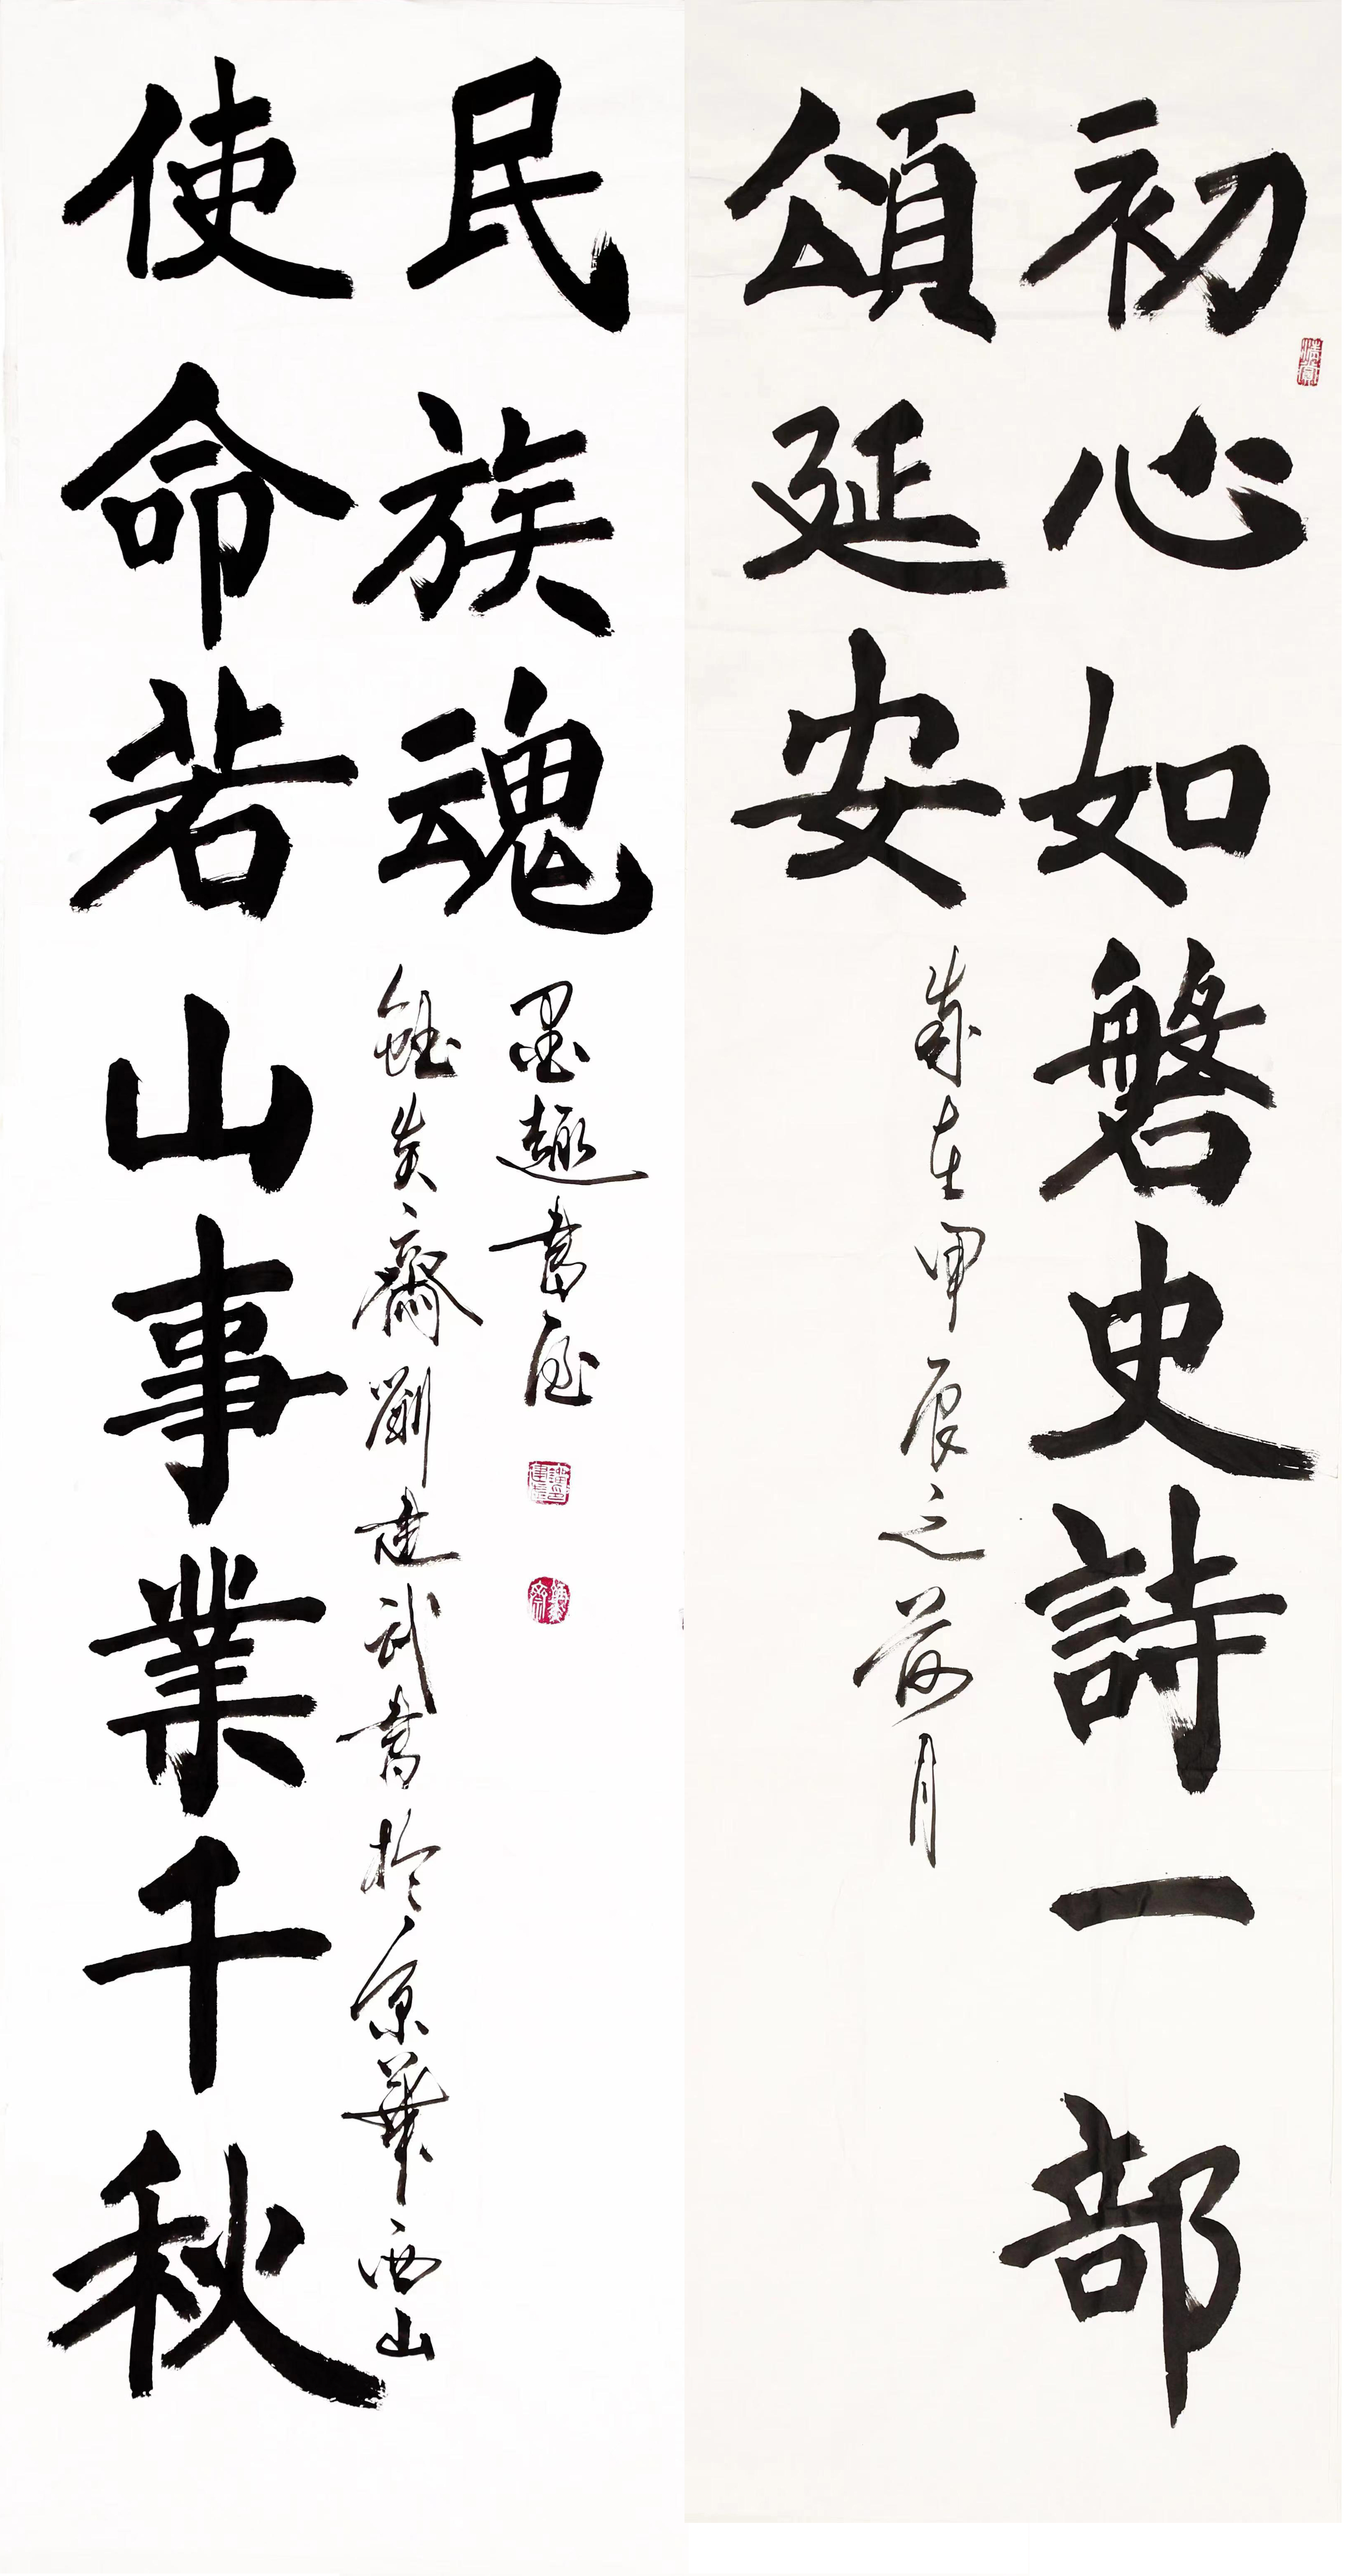 初心如磐史詩一部
頌延安
歲在甲辰之荷月
使命若山事業千秋
民族魂
齋劉建武書於京華西山
墨趣書屋